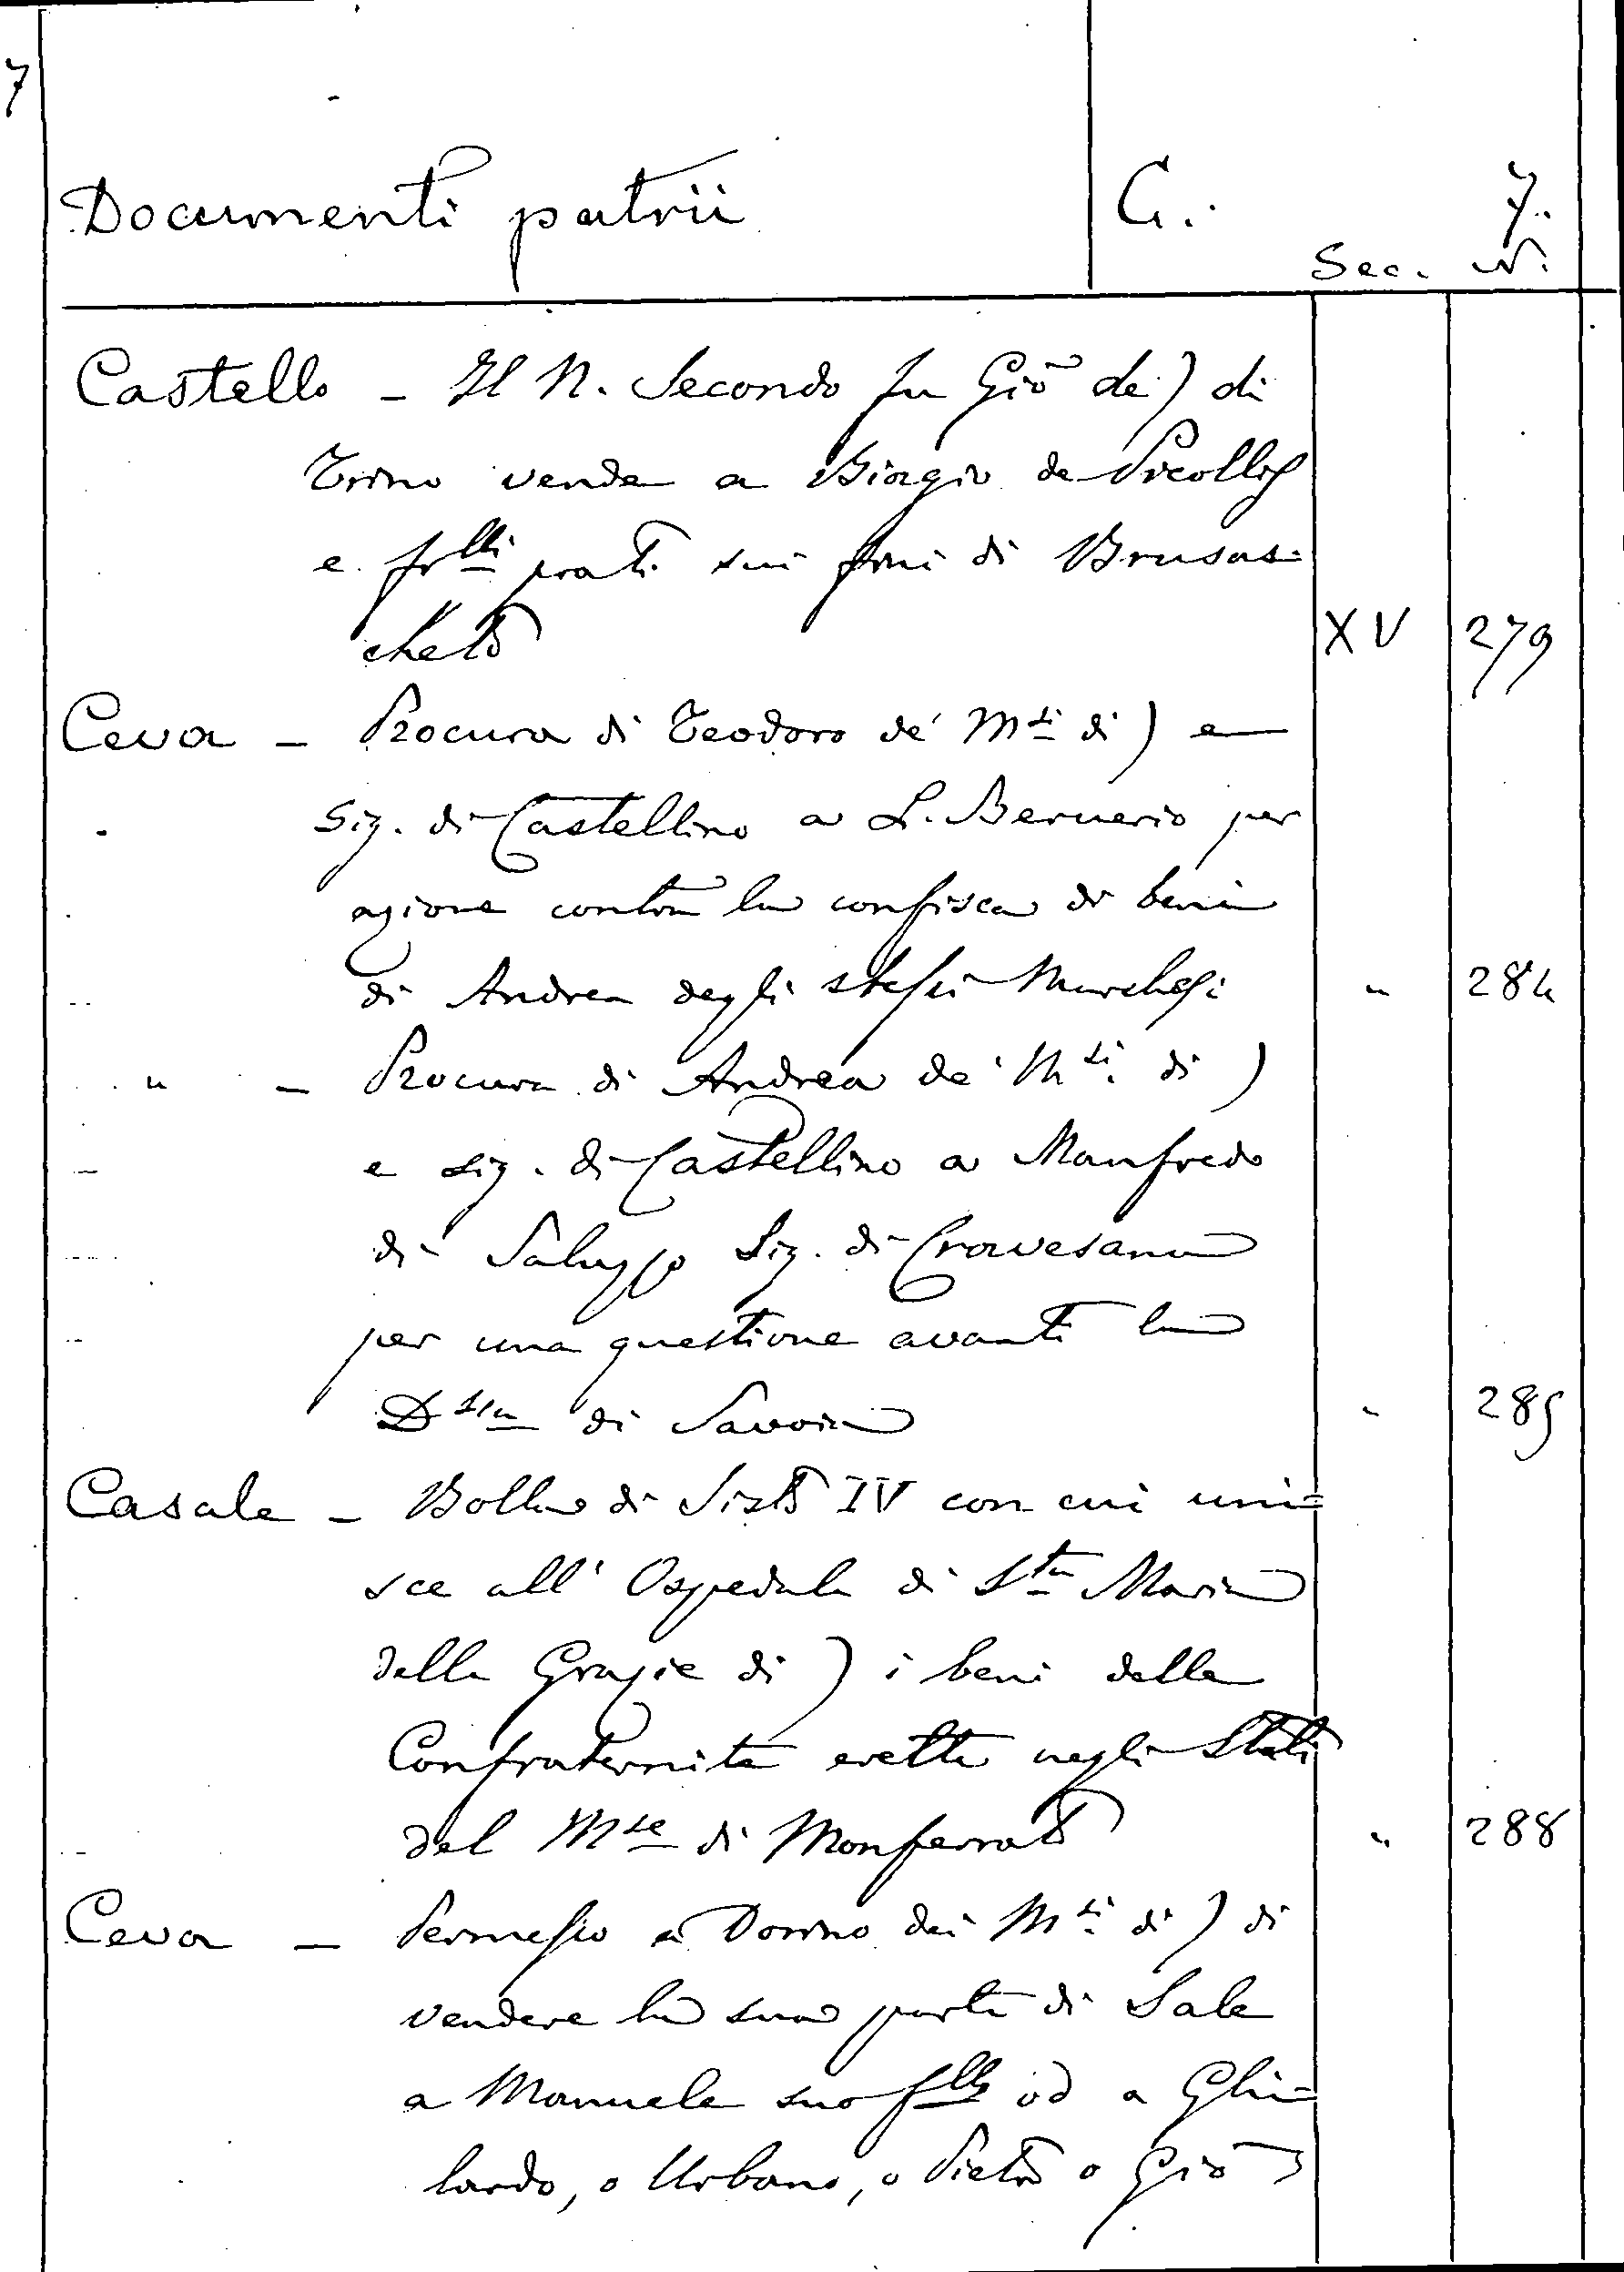 7
Documenti patrii C. 7.
Sec. N.
Castello - Il N. Secondo fu Gio de') di
Trino vende a Biagio de Picollis
e frlli prati sui fini di Brusas-
cheto XV 279
Ceva - Procura di Teodoro de' Msi di) e
sig. di Castellino a L. Bernerio per
azione contro la confisca di beni
di Andrea degli stessi Marchesi " 284
" - Procura di Andrea de' Msi di)
e sig. di Castellino a Manfredo
di Saluzzo Sig. di Cravesana
per una questione avanti la
Dssa di Savoia " 285
Casale - Bolla di Sisto IV con cui uni=
sce all' Ospedale di Sta Maria
delle Grazie di) i beni delle
Confraternite erette negli Stati
del Mse di Monferrato " 288
Ceva - Permesso a Dorino dei Msi di) di
vendere la sua parte di Sale
a Manuele suo fllo od a Ghi=
lardo, o Urbano, o Pietro o Gio